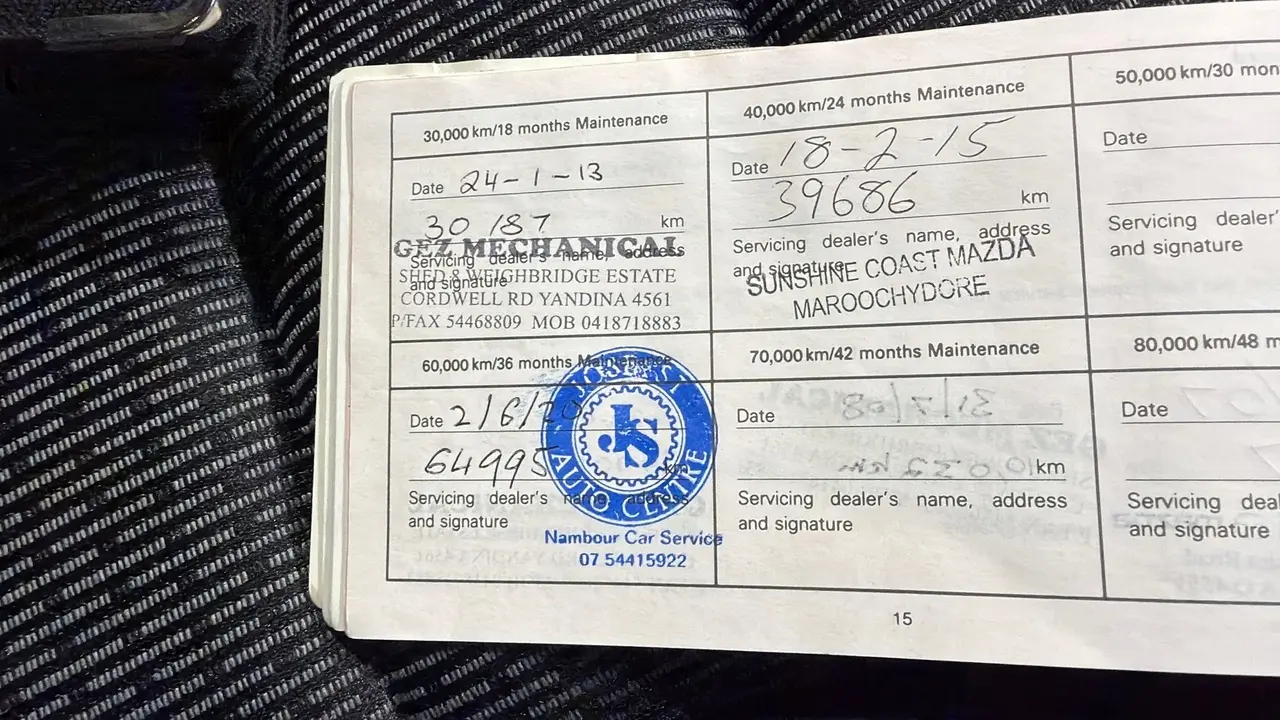 30,000 km/18 months Maintenance
Date 24-1-13
30 187 km
GEZ MECHANICAL
Servicing dealer's name, address
and signature
SHED 8 WEIGHBRIDGE ESTATE
CORDWELL RD YANDINA 4561
P/FAX 54468809 MOB 0418718883
40,000 km/24 months Maintenance
Date 18-2-15
39686 km
Servicing dealer's name, address
and signature
SUNSHINE COAST MAZDA
MAROOCHYDORE
50,000 km/30 mon
Date
Servicing dealer'
and signature
60,000 km/36 months Maintenance
Date 2/6/20
64995 km
Servicing dealer's name, address
and signature
JS
AUTO CENTRE
Nambour Car Service
07 54415922
70,000 km/42 months Maintenance
Date
km
Servicing dealer's name, address
and signature
80,000 km/48 m
Date
Servicing dea
and signature
15